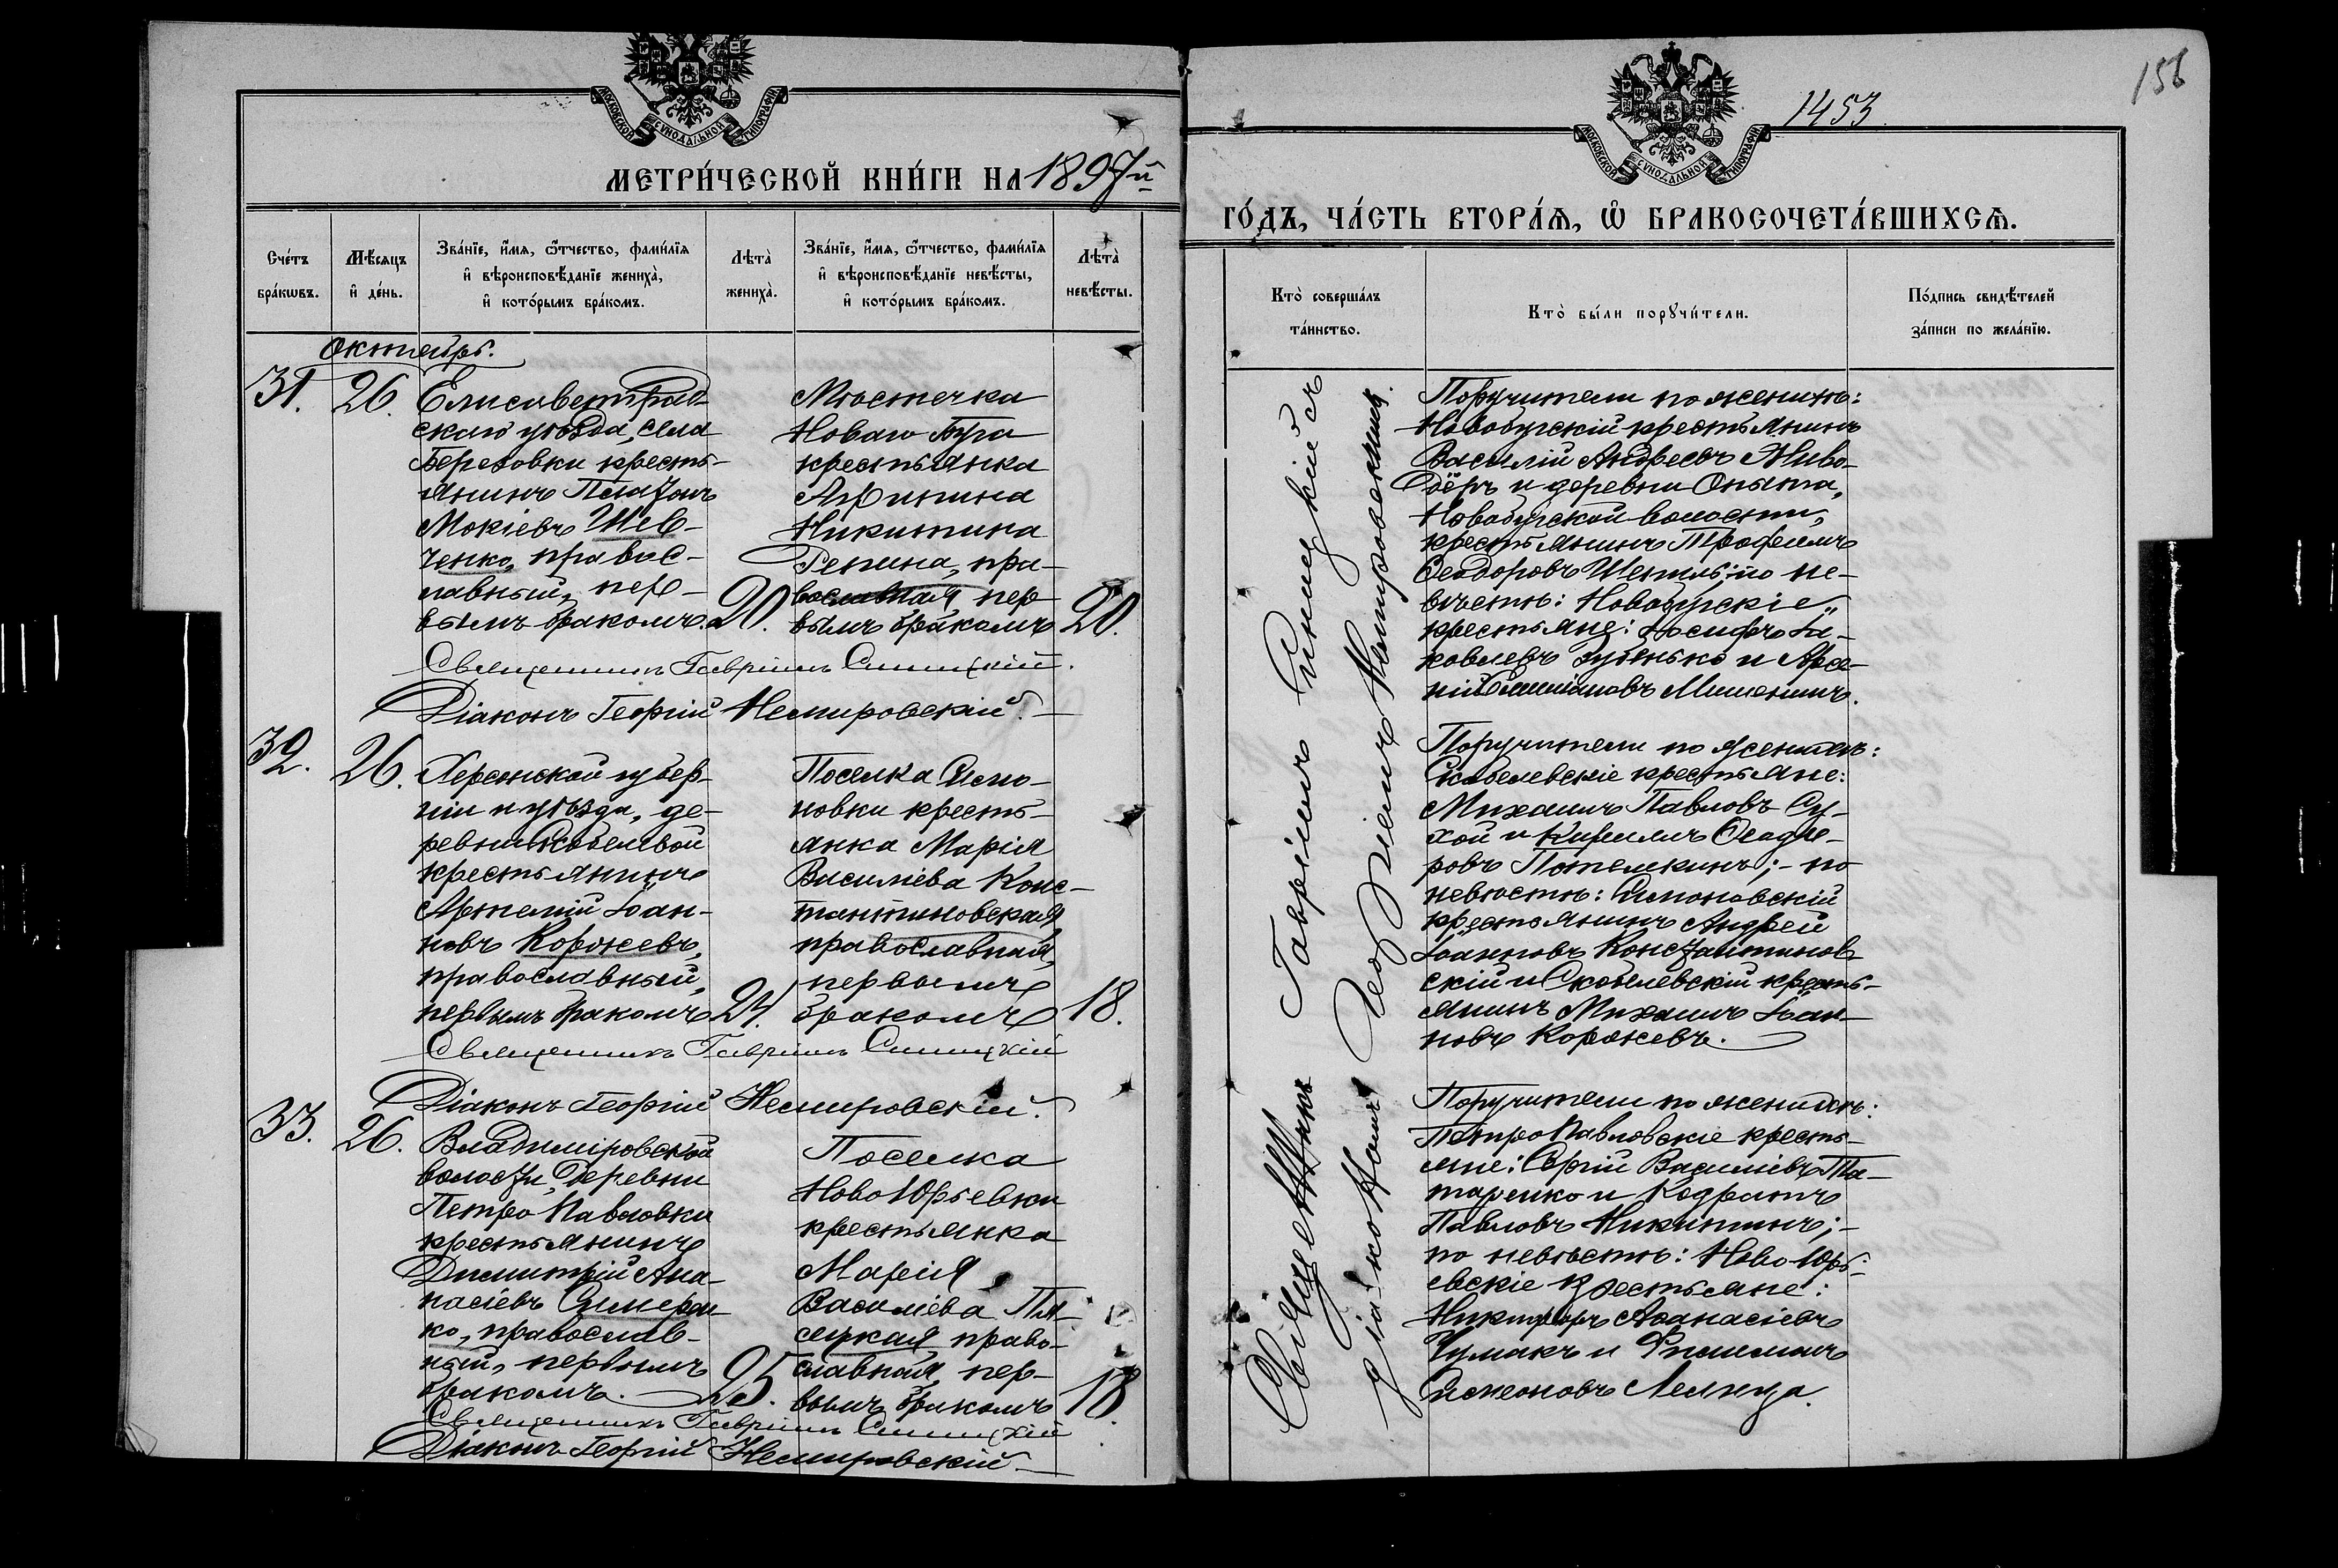 МОСКОВСКОЙ СѴНОДАЛЬНОЙ ТИПОГРАФІИ
МЕТРИ́ЧЕСКОЙ КНИ́ГИ НА 1897й
Сче́тъ бра́кѡвъ.
Мѣ́сяцъ и҆ де́нь.
Зва́нїе, и҆́мѧ, ѻ҆́тчество, фами́лїѧ
и҆ вѣроисповѣ́данїе жениха̀,
и҆ кото́рымъ бра́комъ.
Лѣта̀ жениха̀.
Зва́нїе, и҆́мѧ, ѻ҆́тчество, фами́лїѧ
и҆ вѣроисповѣ́данїе невѣ́сты,
и҆ кото́рымъ бра́комъ.
Лѣта̀ невѣ́сты.
Октябрь.
31.
26.
Елисаветград-
скаго уѣзда, села
Березовки кресть-
янинъ Платонъ
Мокіевъ Шев-
ченко, правос-
лавный, пер-
вымъ бракомъ.
20.
Мѣстечка
Новаго Буга
крестьянка
Никитина
Репина, пра-
вославная пер
вымъ бракомъ
20.
Священникъ Гавріилъ Синицкій.
Діаконъ Георгій Немировскій.
32.
26.
Херсонской губер-
ніи и уѣзда, де-
ревни Скобелевой
крестьянинъ
Артемій Іоан-
новъ Коржевъ,
православный,
первымъ бракомъ
24.
Поселка Симо-
новки кресть-
янка Марія
Василіева Конс-
тантиновская
православная,
первымъ
бракомъ
18.
Священникъ Гавріилъ Синицкій
Діаконъ Георгій Немировскій.
33.
26.
Владиміровской
волости, деревни
Петро Павловки
крестьянинъ
Димитрій Ана-
насіевъ
ко, православ-
ный, первымъ
бракомъ.
25.
Поселка
Ново Юрьевки
крестьянка
Марія
Василіева
право-
славная, пер-
вымъ бракомъ
18.
Священникъ Гавріилъ Синицкій
Діаконъ Георгій Немировскій
156
1453
МОСКОВСКОЙ СѴНОДАЛЬНОЙ ТИПОГРАФІИ
ГО́ДЪ, ЧА́СТЬ ВТОРА́Ѧ, Ѡ҆ БРАКОСОЧЕТА́ВШИХСѦ.
Кто̀ соверша́лъ та́инство.
Кто̀ бы́ли порꙋчи́тели.
По́дпись свидѣ́телей
за́писи по жела́нїю.
Священникъ Гавріилъ Синицкій съ
діакономъ Георгіемъ Немировскимъ.
Поручители по женихѣ:
Новобугскій крестьянинъ
Василій Андреевъ Живо-
дёръ и деревни
Новобугской волости,
крестьянинъ
Ѳеодоровъ по не-
вѣстѣ: Новобугскіе
крестьяне: Іосифъ Іа-
ковлевъ Зубенько и Арсе-
ній
Поручители по женихѣ:
Скобелевскіе крестьяне:
Михаилъ Павловъ Су-
хой и Кириллъ Ѳеодо-
ровъ Потемкинъ;- по
невѣстѣ: Симоновскій
крестьянинъ Андрей
Іоанновъ Константинов-
скій и Скобелевскій кресть-
янинъ Михаилъ Іоан-
новъ Коржевъ.
Поручители по женихѣ:
Петро Павловскіе кресть-
яне: Сергій Василіевъ Та-
таренко и Кодратъ
Павловъ Никитинъ;-
по невѣстѣ: Ново Юрь-
евскіе крестьяне:
Никифоръ Аѳанасіевъ
Чумакъ и Филимонъ
Симеоновъ